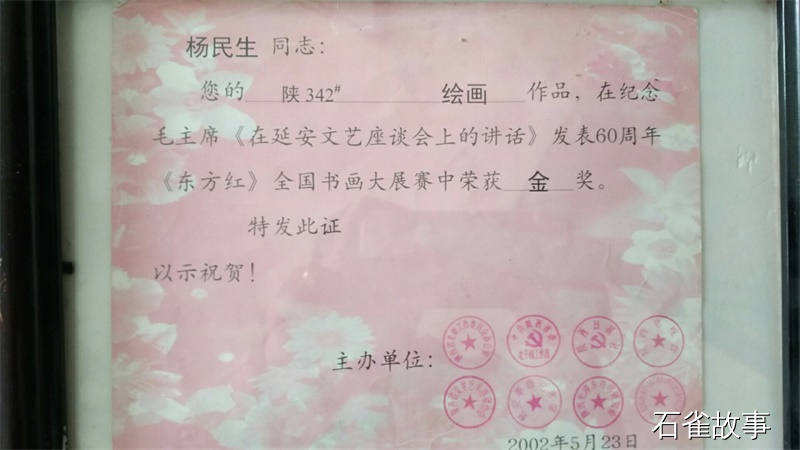 杨民生 同志：
您的 陕342# 绘画 作品，在纪念
毛主席《在延安文艺座谈会上的讲话》发表60周年
《东方红》全国书画大展赛中荣获 金 奖。
特发此证
以示祝贺！
主办单位：
2002年5月23日
石雀故事